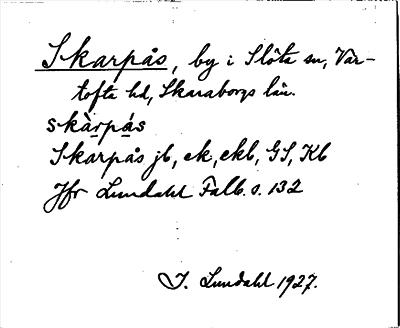 Skarpås, by i Slöta sn, Var-
tofta hd, Skaraborgs län.
skàrpás
Skarpås jb, ek, ekb, GS, Kb
Jfr Lundahl Falb. s. 132
I. Lundahl 1927.